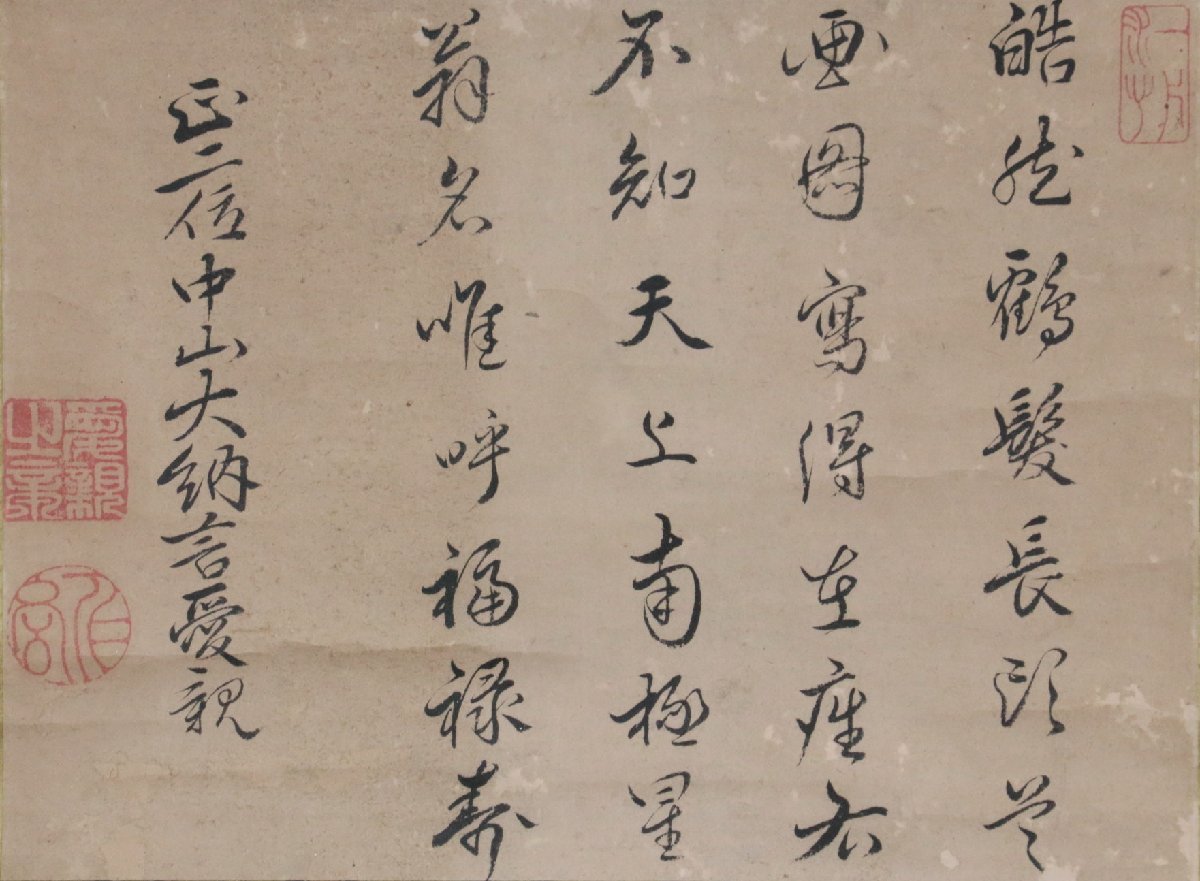 皓然鶴髮長頭
画圖寫得在座右
不知天上南極星
翁名唯呼福禄寿
正二位中山大納言愛親
愛親之章